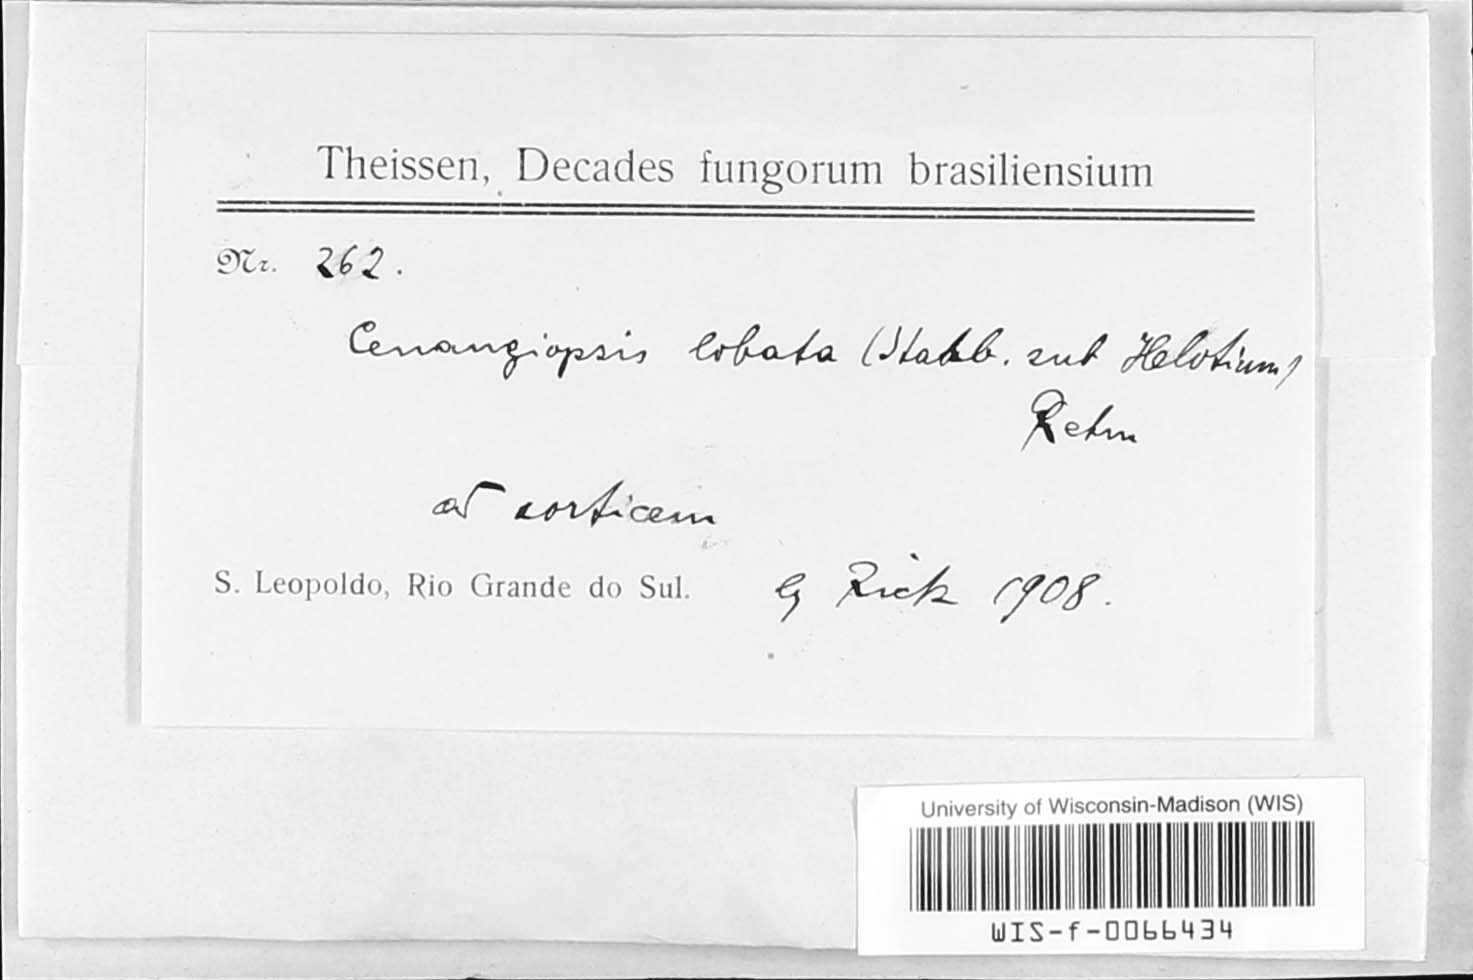 Theissen, Decades fungorum brasiliensium
Nr. 262.
Cenangiopsis lobata (Stahlb. sub Helotium)
Rehm
ad corticem
S. Leopoldo, Rio Grande do Sul. lg Rick 1908.
University of Wisconsin-Madison (WIS)
WIS-f-0066434